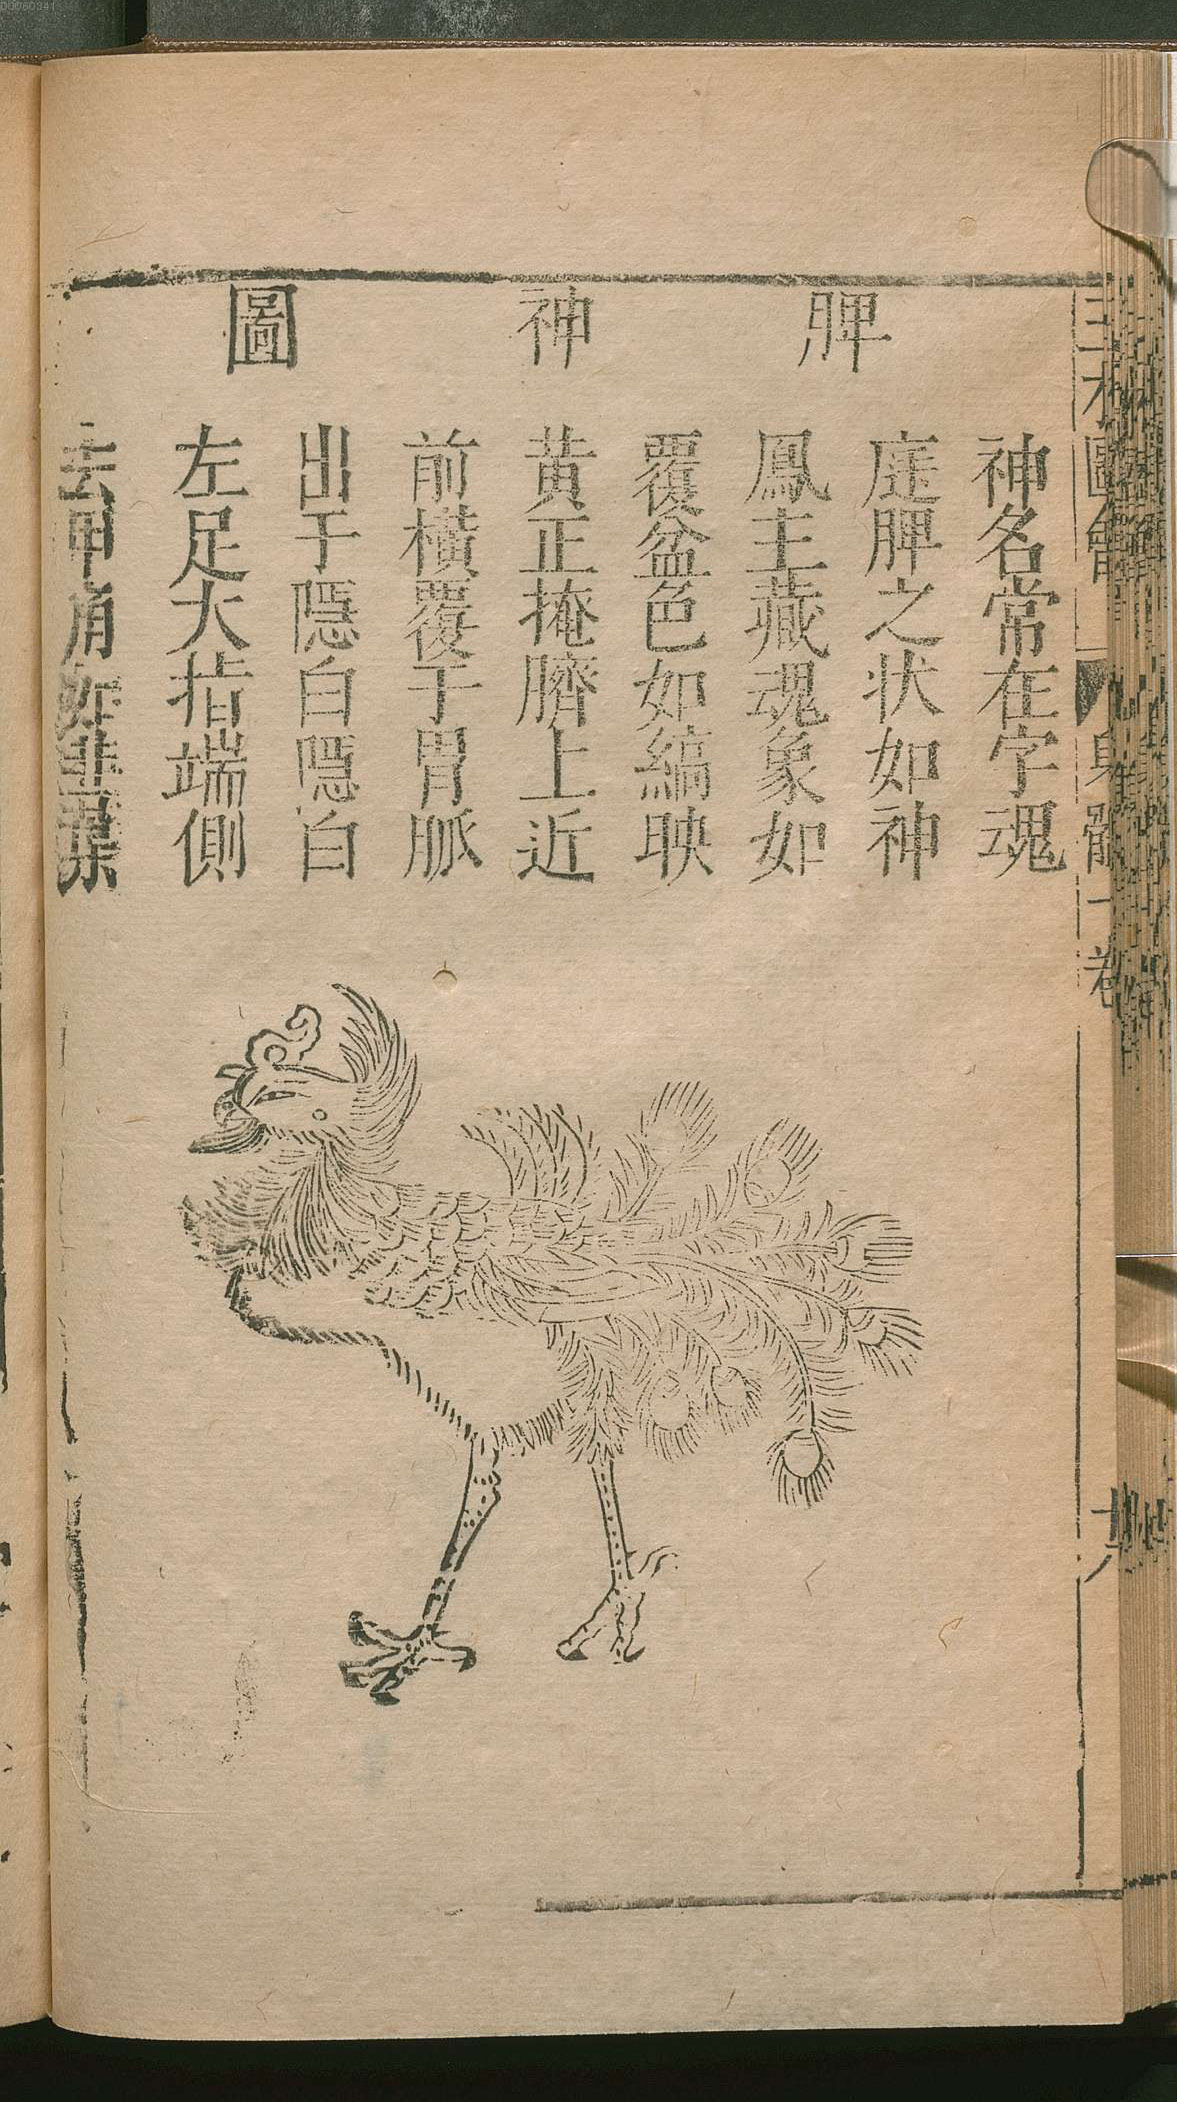 D0060341
脾神圖
神名常在字魂
庭脾之状如神
鳳主藏魂象如
覆盆色如縞映
黃正掩臍上近
前橫覆于胃脈
出于隱白隱白
左足大指端側
去甲角如韭葉
三才圖會
身體一卷
十六